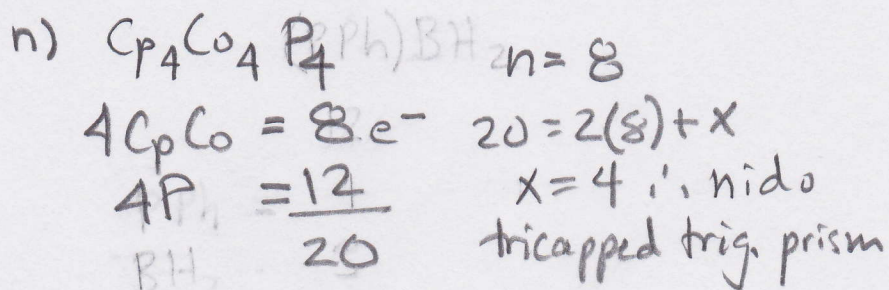 n) Cp4Co4P4 n = 8
4CpCo = 8e- 20 = 2(8) + x
4P = 12 x = 4 ∴ nido
20 tricapped trig. prism